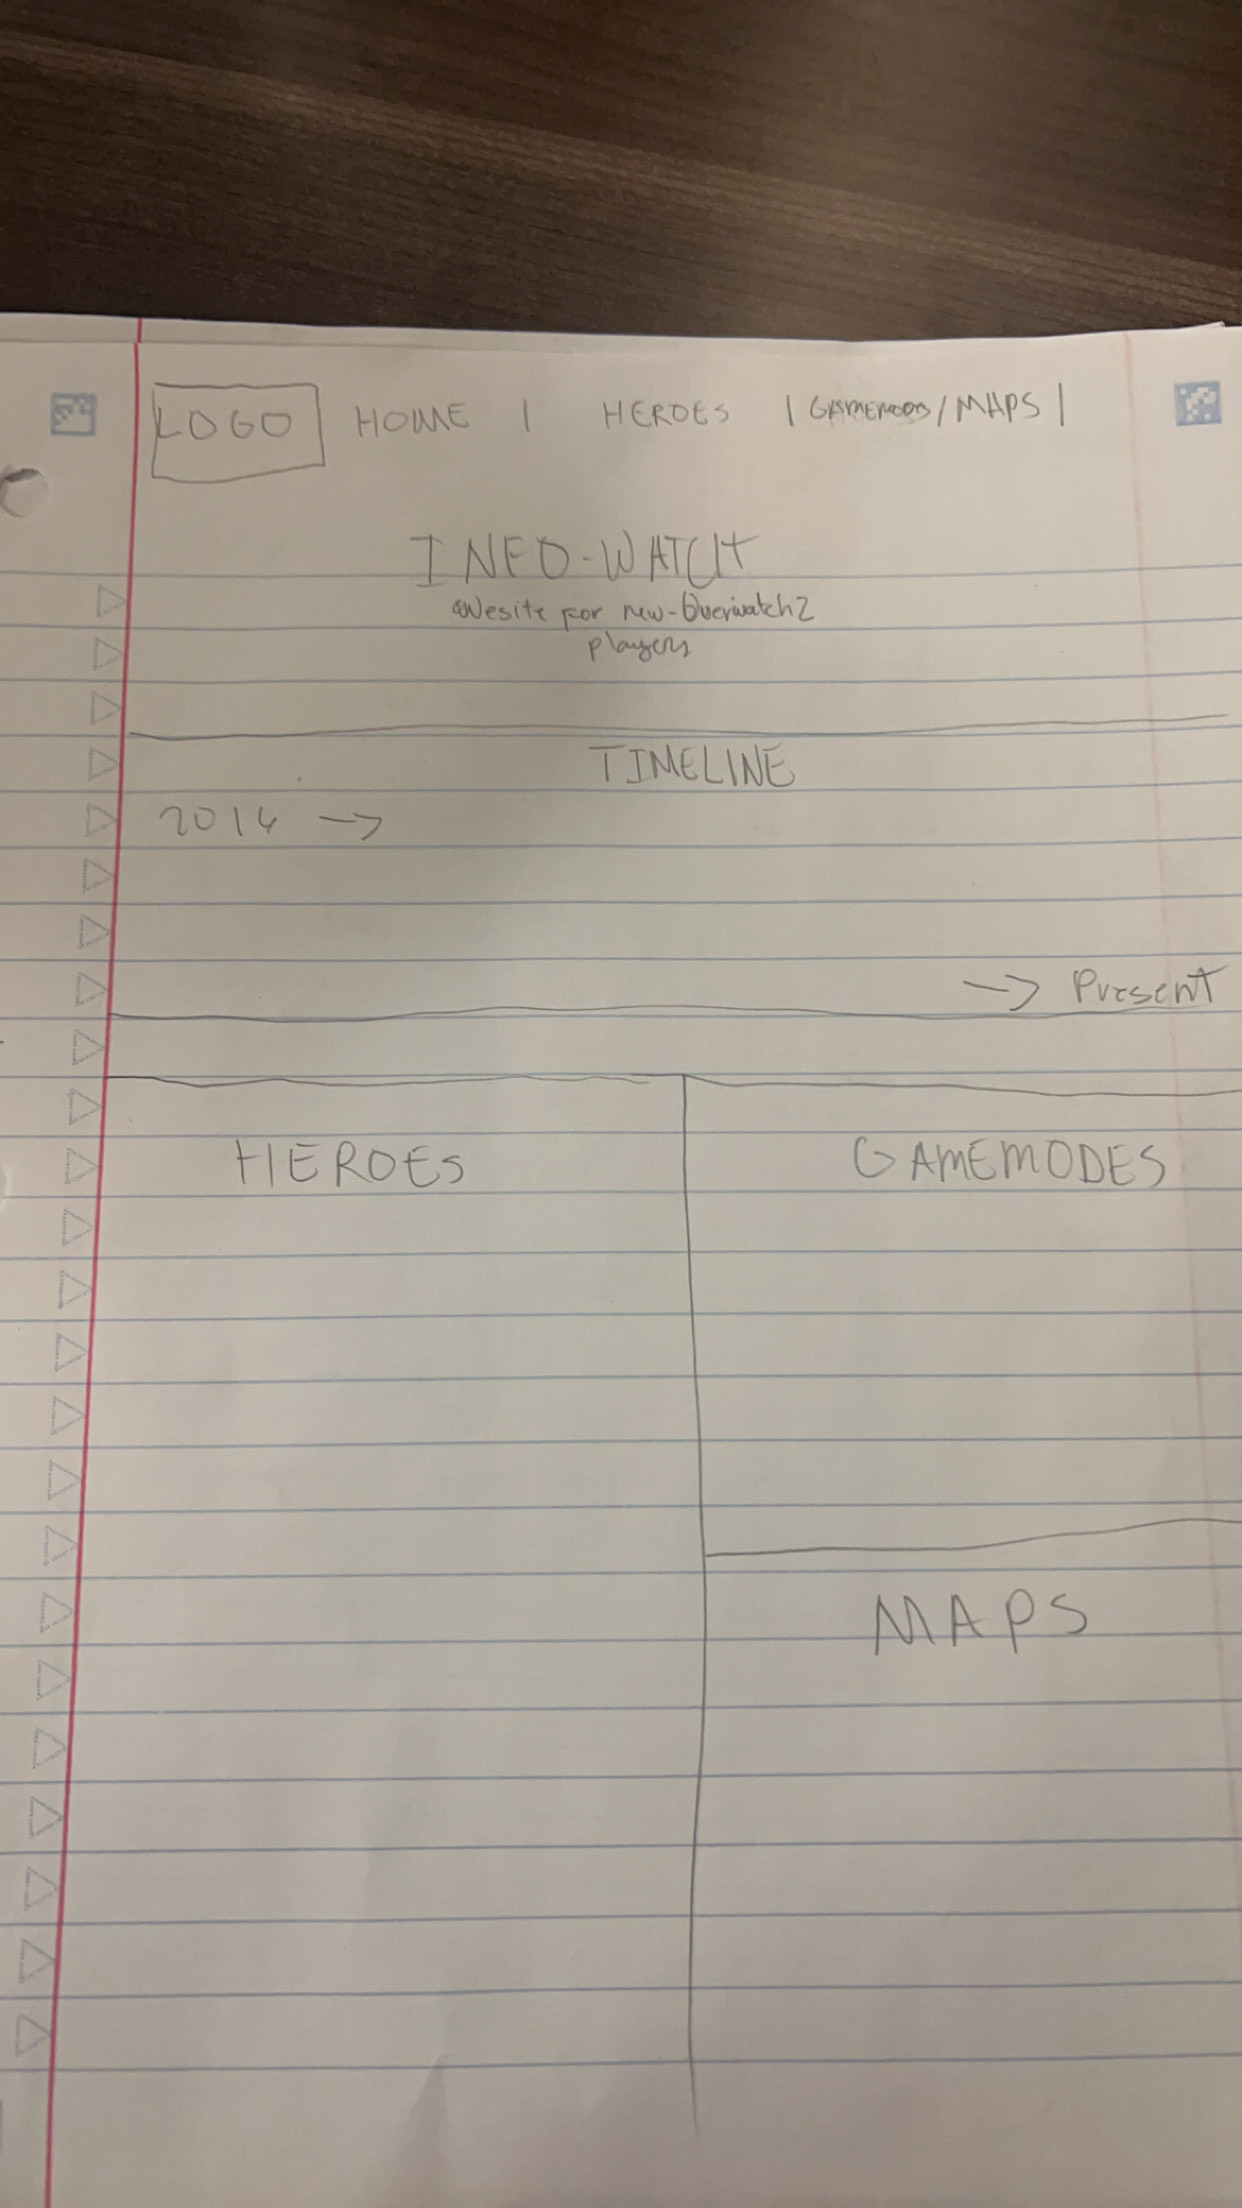 LOGO HOME | HEROES | GAMEMODES/MAPS |
INFO-WATCH
Wesite for new-Overwatch2
players
TIMELINE
2016 →
→ Present
HEROES
GAMEMODES
MAPS